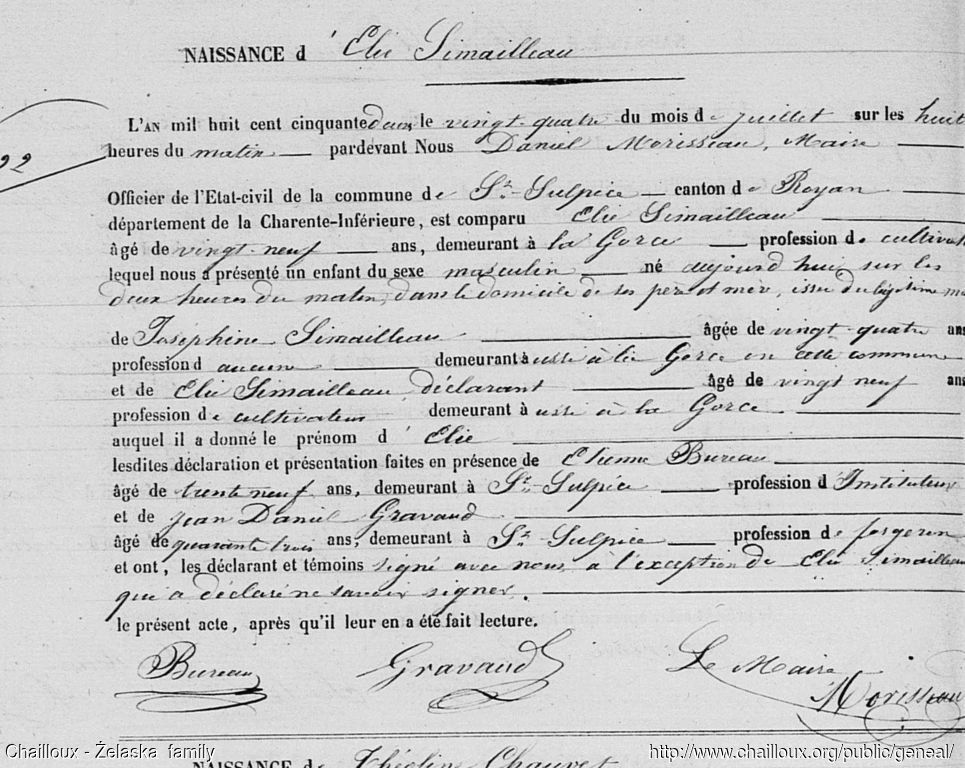 NAISSANCE d' Elie Simailleau
L'AN mil huit cent cinquante deux, le vingt-quatre du mois de juillet sur les huit
heures du matin pardevant Nous Daniel Morisseau, Maire
92
Officier de l'Etat-civil de la commune de St-Sulpice canton de Royan
département de la Charente-Inférieure, est comparu Elie Simailleau
âgé de vingt-neuf ans, demeurant à la Gorce profession de cultivat
lequel nous a présenté un enfant du sexe masculin né aujourd'hui sur les
deux heures du matin, dans le domicile de ses père et mère, issu du légitime ma
de Joséphine Simailleau âgée de vingt-quatre ans
profession d aucune demeurant aussi à la Gorce en cette commune
et de Elie Simailleau déclarant âgé de vingt neuf ans
profession de cultivateur demeurant à ussi à la Gorce
auquel il a donné le prénom d' Elie
lesdites déclaration et présentation faites en présence de Etienne Bureau
âgé de trente neuf ans, demeurant à St-Sulpice profession d'Instituteur
et de Jean Daniel Gravaud
âgé de quarante trois ans, demeurant à St-Sulpice profession de forgeron
et ont, les déclarant et témoins signé avec nous, à l'exception de Elie Simailleau
qui a déclaré ne savoir signer.
le présent acte, après qu'il leur en a été fait lecture.
Bureau Gravaud Le Maire
Morisseau
Chailloux - Żelaska family http://www.chailloux.org/public/geneal/
NAISSANCE de Théolin Chauvet